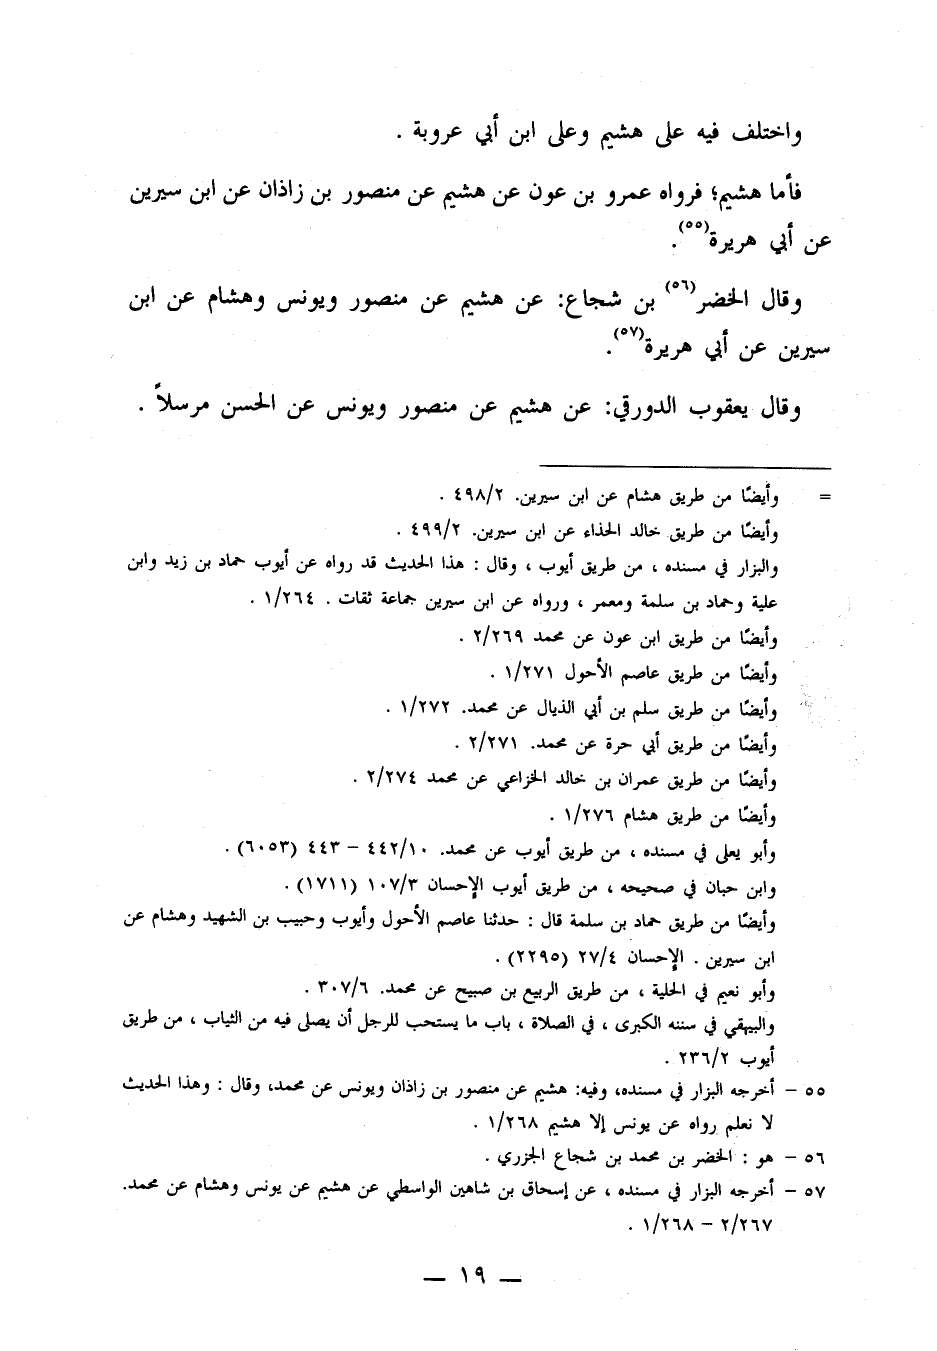 واختلف فيه على هشيم وعلى ابن أبي عروبة .
فأما هشيم؛ فرواه عمرو بن عون عن هشيم عن منصور بن زاذان عن ابن سيرين
عن أبي هريرة(٥٥).
وقال الخضر(٥٦) بن شجاع: عن هشيم عن منصور ويونس وهشام عن ابن
سيرين عن أبي هريرة(٥٧).
وقال يعقوب الدورقي: عن هشيم عن منصور ويونس عن الحسن مرسلاً .
= وأيضًا من طريق هشام عن ابن سيرين. ٤٩٨/٢ .
وأيضًا من طريق خالد الحذاء عن ابن سيرين. ٤٩٩/٢ .
والبزار في مسنده ، من طريق أيوب ، وقال : هذا الحديث قد رواه عن أيوب حماد بن زيد وابن
علية وحماد بن سلمة ومعمر ، ورواه عن ابن سيرين جماعة ثقات . ١/٢٦٤ .
وأيضًا من طريق ابن عون عن محمد ٢/٢٦٩ .
وأيضًا من طريق عاصم الأحول ١/٢٧١ .
وأيضًا من طريق سلم بن أبي الذيال عن محمد. ١/٢٧٢ .
وأيضًا من طريق أبي حرة عن محمد. ٢/٢٧١ .
وأيضًا من طريق عمران بن خالد الخزاعي عن محمد ٢/٢٧٤ .
وأيضًا من طريق هشام ١/٢٧٦ .
وأبو يعلى في مسنده ، من طريق أيوب عن محمد. ٤٤٢/١٠ – ٤٤٣ (٦٠٥٣) .
وابن حبان في صحيحه ، من طريق أيوب الإحسان ١٠٧/٣ (١٧١١) .
وأيضًا من طريق حماد بن سلمة قال : حدثنا عاصم الأحول وأيوب وحبيب بن الشهيد وهشام عن
ابن سيرين . الإحسان ٢٧/٤ (٢٢٩٥) .
وأبو نعيم في الحلية ، من طريق الربيع بن صبيح عن محمد. ٣٠٧/٦ .
والبيهقي في سننه الكبرى ، في الصلاة ، باب ما يستحب للرجل أن يصلى فيه من الثياب ، من طريق
أيوب ٢٣٦/٢ .
٥٥ – أخرجه البزار في مسنده، وفيه: هشيم عن منصور بن زاذان ويونس عن محمد، وقال : وهذا الحديث
لا نعلم رواه عن يونس إلا هشيم ١/٢٦٨ .
٥٦ – هو : الخضر بن محمد بن شجاع الجزري .
٥٧ – أخرجه البزار في مسنده ، عن إسحاق بن شاهين الواسطي عن هشيم عن يونس وهشام عن محمد.
٢/٢٦٧ – ١/٢٦٨ .
— ١٩ —